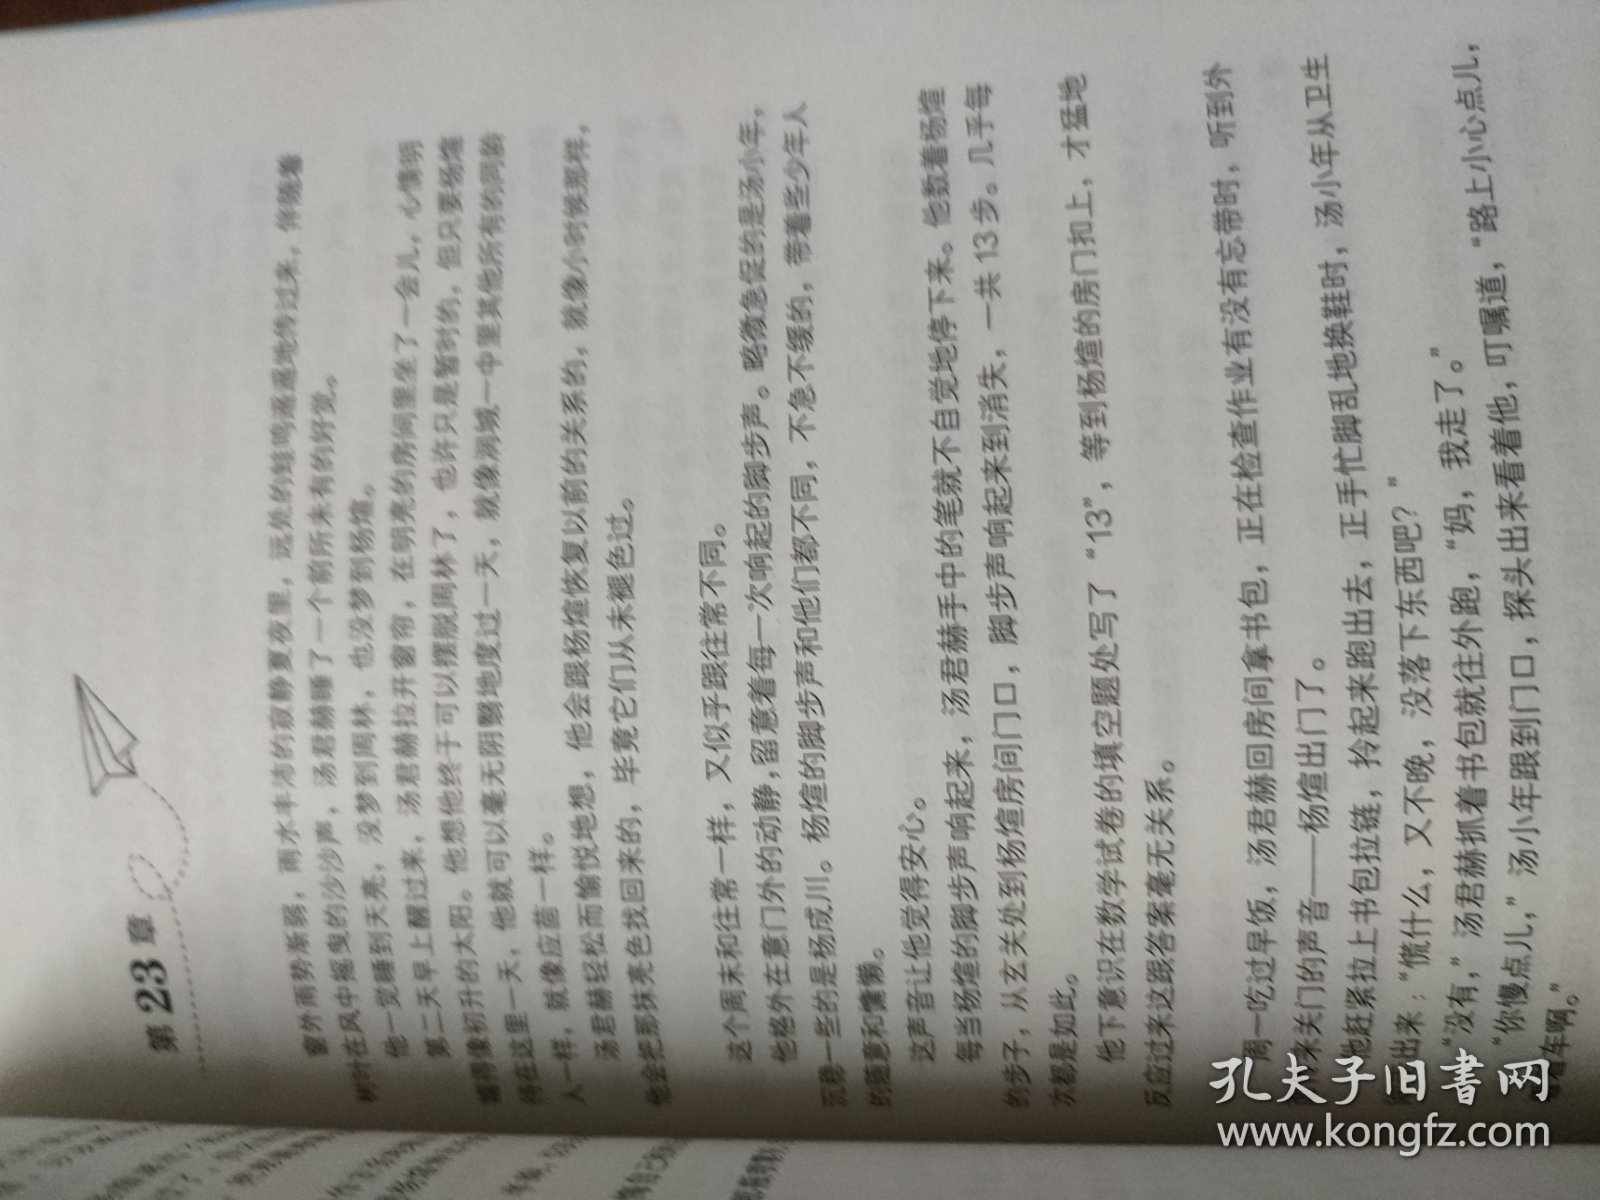 第23章
窗外雨势渐弱，雨水丰沛的寂静夏夜里，远处的蛙鸣遥遥地传过来，伴随着
树叶在风中摇曳的沙沙声，汤君赫睡了一个前所未有的好觉。
他一觉睡到天亮，没梦到周林，也没梦到杨煊。
第二天早上醒过来，汤君赫拉开窗帘，在明亮的房间里坐了一会儿，心情明
媚得像初升的太阳。他想他终于可以摆脱周林了，也许只是暂时的，但只要杨煊
待在这里一天，他就可以毫无阴翳地度过一天，就像润城一中里其他所有的同龄
人一样，就像应茴一样。
汤君赫轻松而愉悦地想，他会跟杨煊恢复以前的关系的，就像小时候那样，
他会把那抹亮色找回来的，毕竟它们从未褪色过。
这个周末和往常一样，又似乎跟往常不同。
他格外在意门外的动静，留意着每一次响起的脚步声。略微急促的是汤小年，
沉稳一些的是杨成川。杨煊的脚步声和他们都不同，不急不缓的，带着些少年人
的随意和慵懒。
这声音让他觉得安心。
每当杨煊的脚步声响起来，汤君赫手中的笔就不自觉地停下来。他数着杨煊
的步子，从玄关处到杨煊房间门口，脚步声响起来到消失，一共13步。几乎每
次都是如此。
他下意识在数学试卷的填空题处写了“13”，等到杨煊的房门扣上，才猛地
反应过来这跟答案毫无关系。
周一吃过早饭，汤君赫回房间拿书包，正在检查作业有没有忘带时，听到外
来关门的声音——杨煊出门了。
他赶紧拉上书包拉链，拎起来跑出去，正手忙脚乱地换鞋时，汤小年从卫生
出来：“慌什么，又不晚，没落下东西吧？”
“没有，”汤君赫抓着书包就往外跑，“妈，我走了。”
“你慢点儿，”汤小年跟到门口，探头出来看着他，叮嘱道，“路上小心点儿，
看着车啊。”
孔夫子旧书网
www.kongfz.com